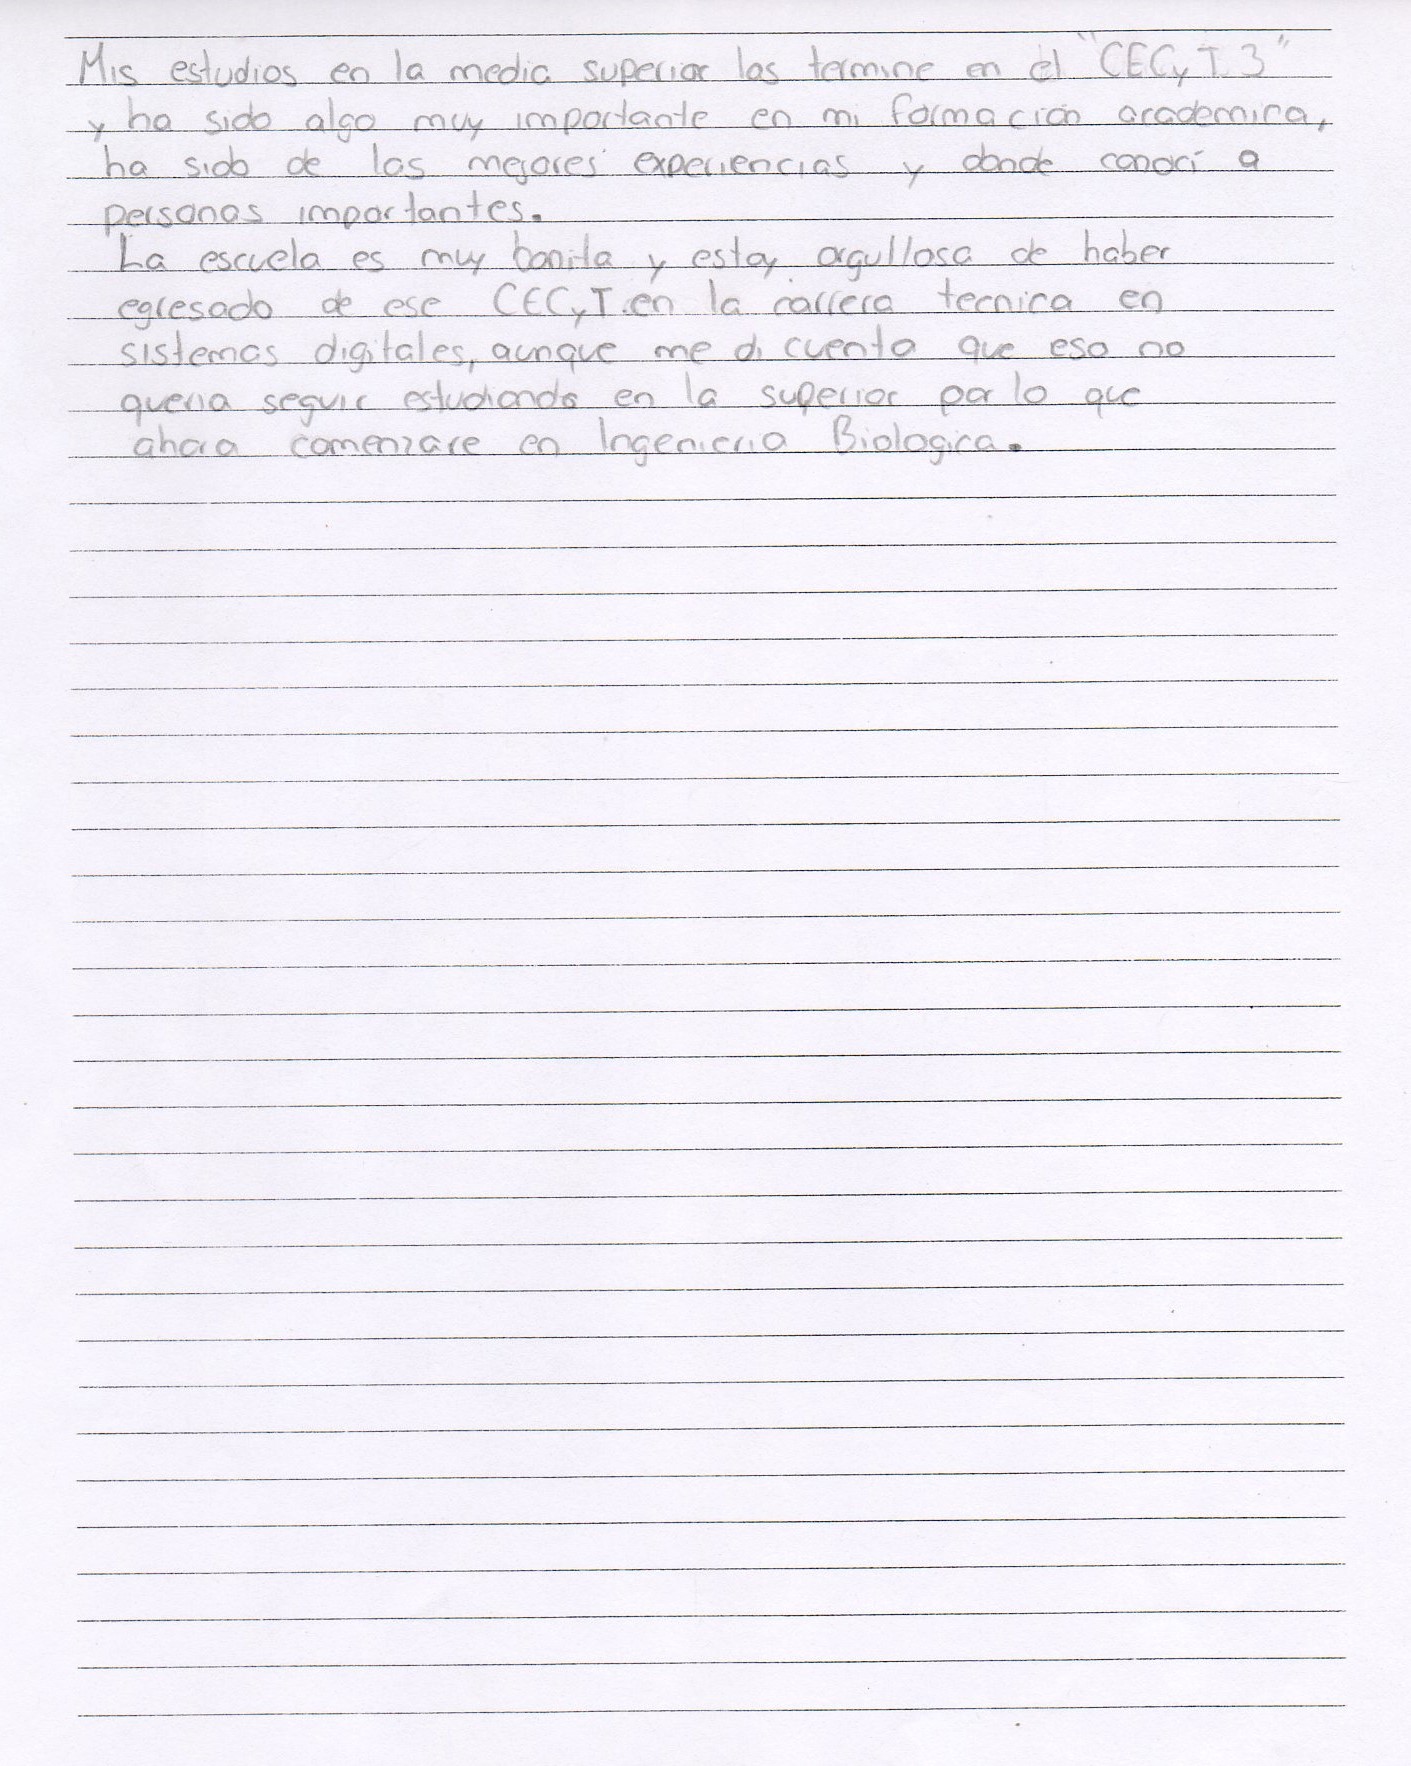 Mis estudios en la media superior los termine en el "CECyT 3"
y ha sido algo muy importante en mi formación academica,
ha sido de las mejores experiencias y donde conocí a
personas importantes.
La escuela es muy bonita y estoy orgullosa de haber
egresado de ese CECyT en la carrera tecnica en
sistemas digitales, aunque me di cuenta que eso no
queria seguir estudiando en la superior por lo que
ahora comenzare en Ingenieria Biologica.